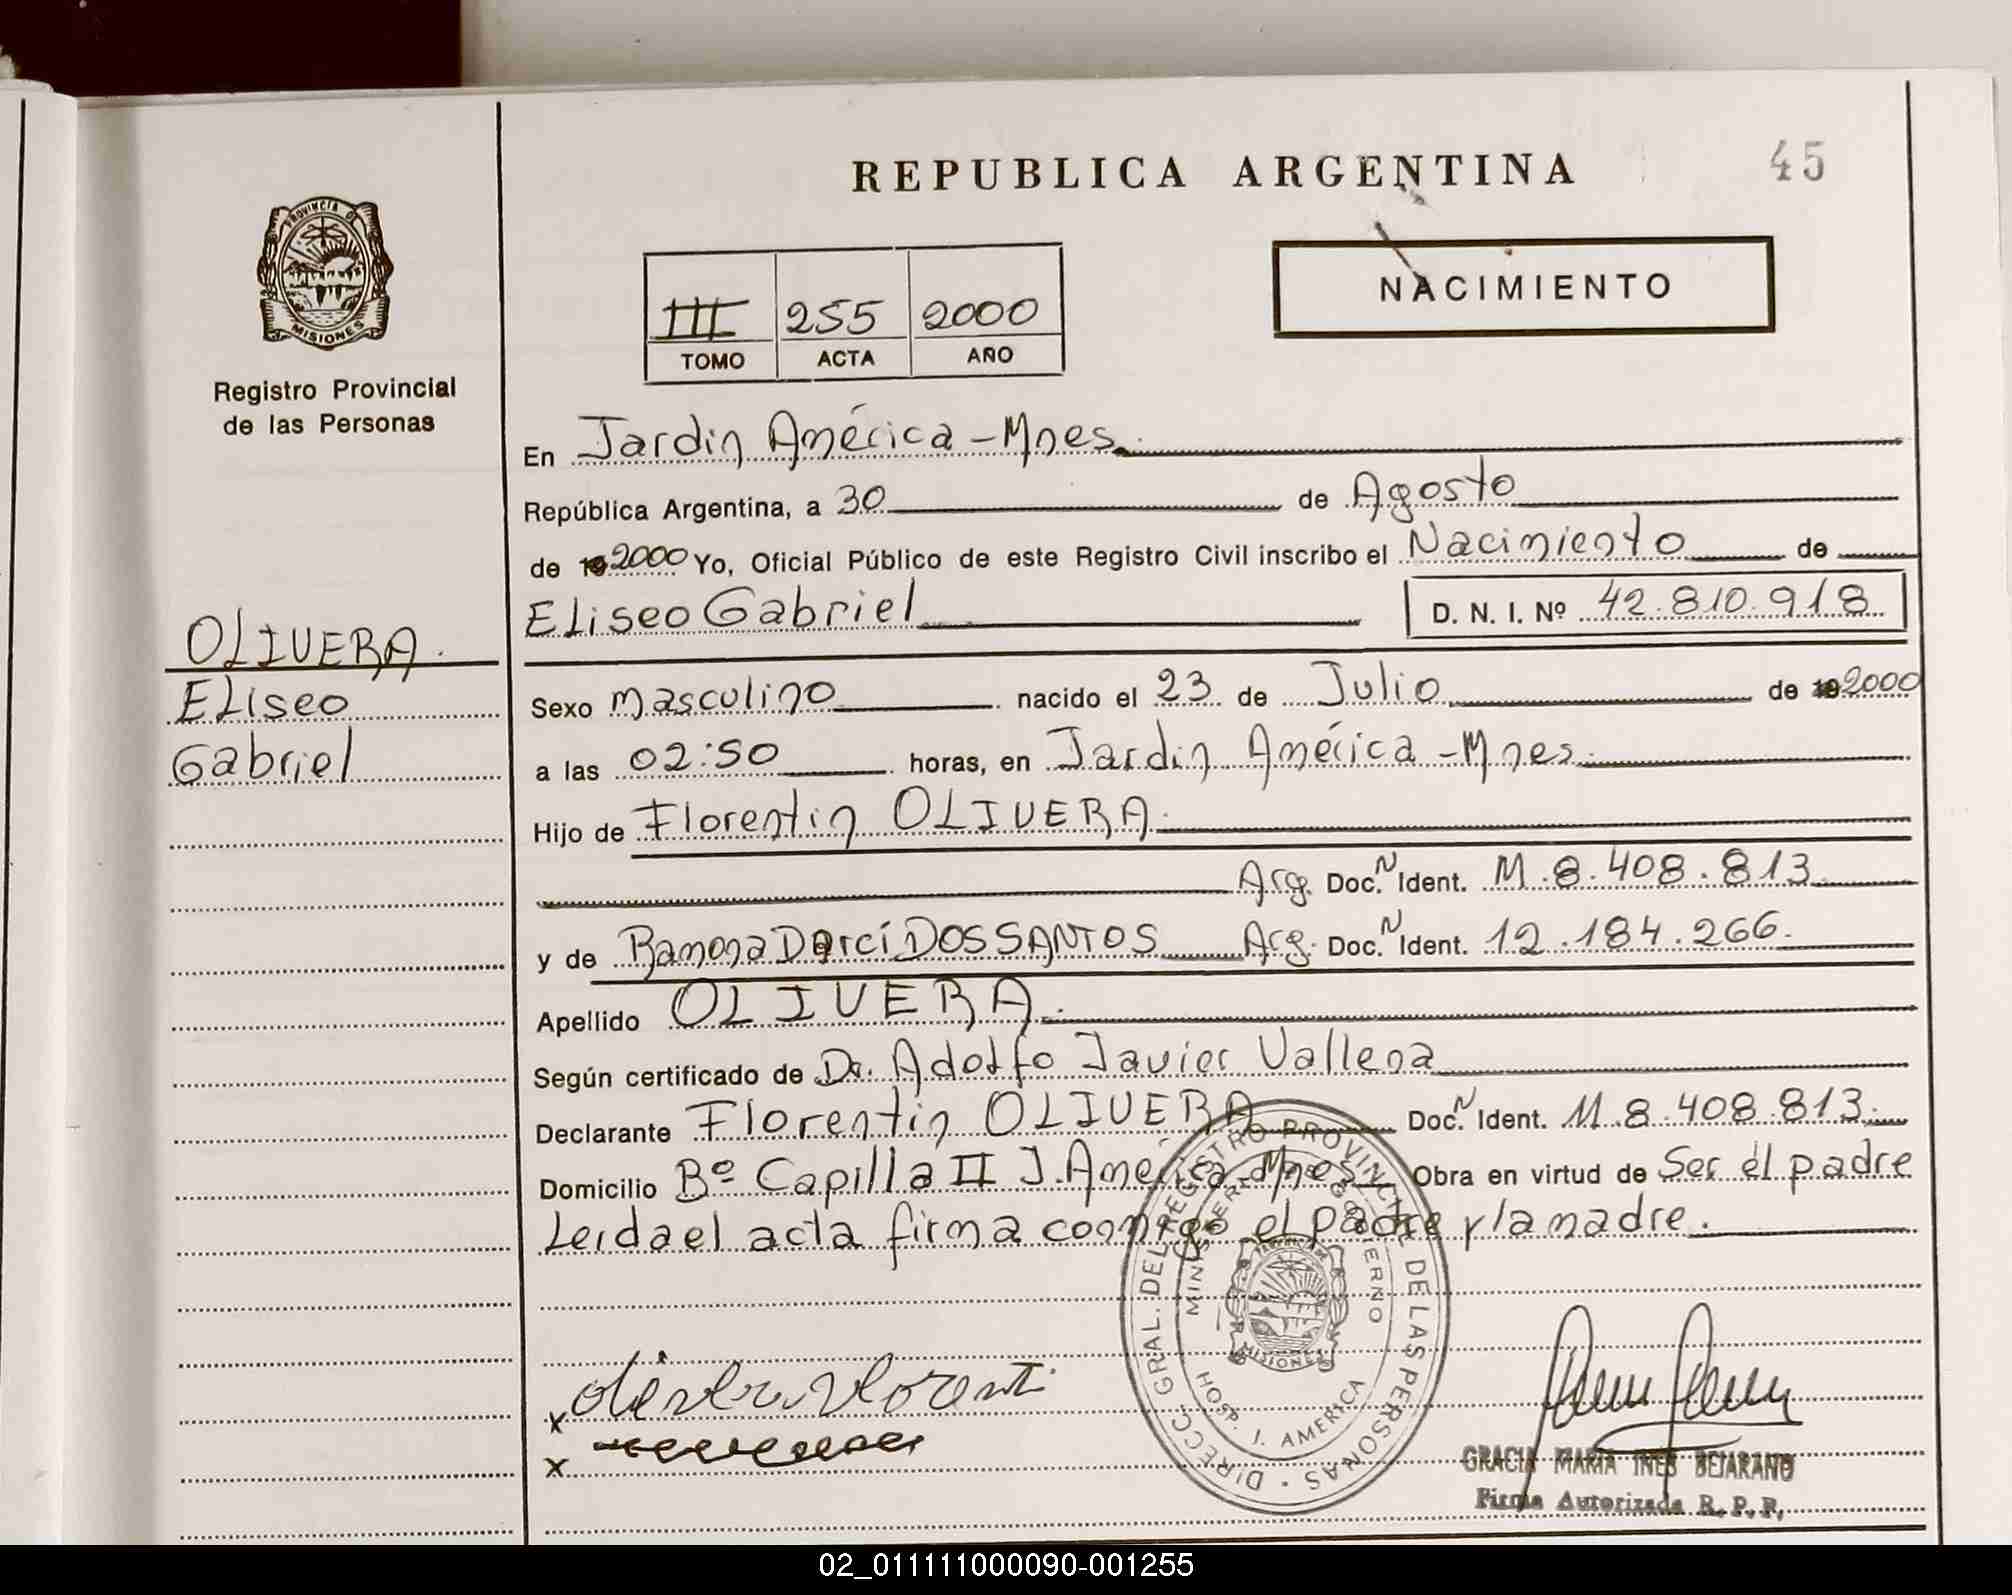 REPUBLICA ARGENTINA
45
PROVINCIA DE
MISIONES
Registro Provincial
de las Personas
III 255 2000
TOMO ACTA AÑO
NACIMIENTO
En Jardin América - Mnes.
República Argentina, a 30 de Agosto
de 19 2000 Yo, Oficial Público de este Registro Civil inscribo el Nacimiento de
Eliseo Gabriel D. N. I. Nº 42.810.918
OLIVERA.
Eliseo
Gabriel
Sexo masculino nacido el 23 de Julio de 19 2000
a las 02:50 horas, en Jardin América - Mnes.
Hijo de Florentin OLIVERA.
Arg. Doc. N Ident. M.8.408.813
y de Ramona Darcí DOS SANTOS Arg. Doc. N Ident. 12.184.266.
Apellido OLIVERA.
Según certificado de Dr. Adolfo Javier Vallena
Declarante Florentin OLIVERA Doc. N Ident. M.8.408.813.
Domicilio Bº Capilla II J. América Mnes Obra en virtud de Ser el padre
Leida el acta firma conmigo el padre y la madre.
DIRECC. GRAL. DEL REGISTRO PROVINCIAL DE LAS PERSONAS
MINISTERIO DE GOBIERNO
MISIONES
HOSP. J. AMERICA
x
x
GRACIA MARIA INES BEJARANO
Firma Autorizada R. P. P.
02_011111000090-001255